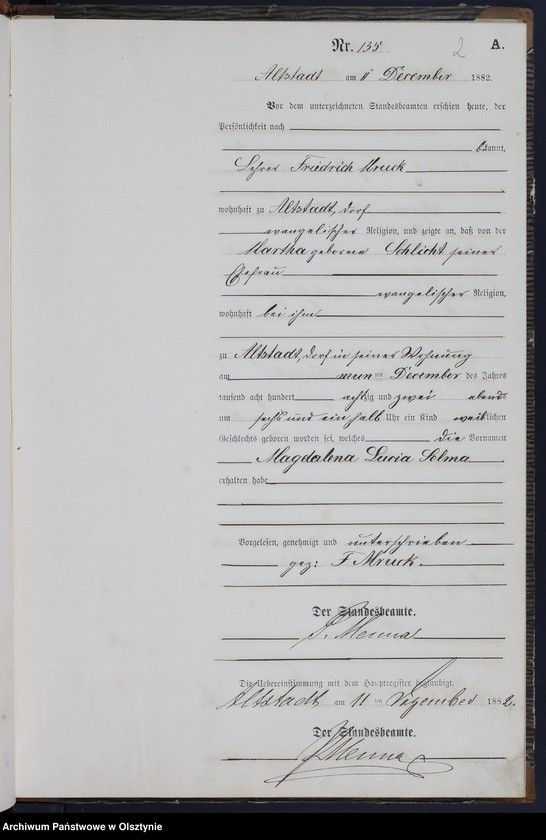 Nr. 135 2 A.
Altstadt am 11 December 1882.
Vor dem unterzeichneten Standesbeamten erschien heute, der
Persönlichkeit nach
bekannt,
Lehrer Friedrich Mruck
wohnhaft zu Altstadt, dorf
evangelischer Religion, und zeigte an, daß von der
Martha geborene Schlicht seiner
Ehefrau
evangelischer Religion,
wohnhaft bei ihm
zu Altstadt, dorf in seiner Wohnung
am neun ten December des Jahres
tausend acht hundert achtzig und zwei abends
um sechs und ein halb Uhr ein Kind weiblichen
Geschlechts geboren worden sei, welches die Vornamen
Magdalena Lucia Selma
erhalten habe
Vorgelesen, genehmigt und unterschrieben
gez: F Mruck.
Der Standesbeamte.
Menna
Die Uebereinstimmung mit dem Hauptregister beglaubigt.
Altstadt am 11 ten Dezember 1882.
Der Standesbeamte.
Menna
Archiwum Państwowe w Olsztynie